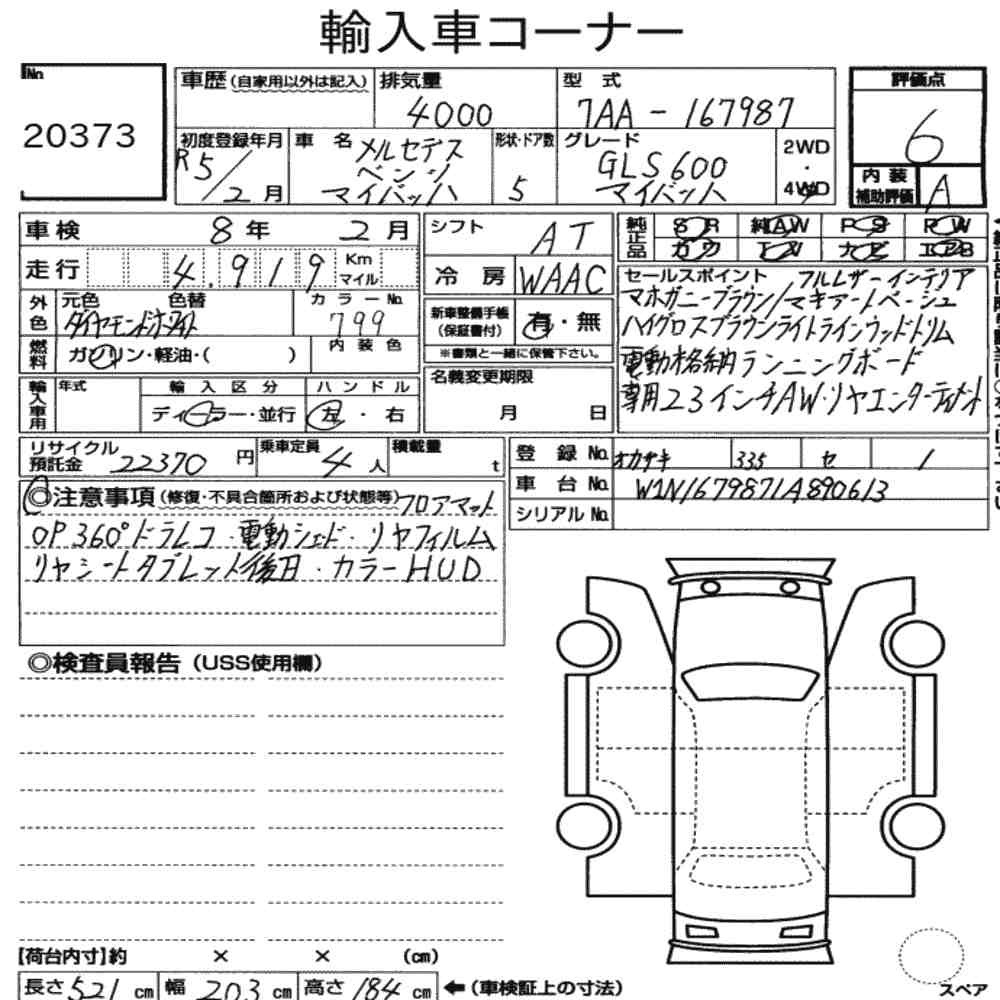 輸入車コーナー
No.
20373
車歴(自家用以外は記入) 排気量 型 式
4000 7AA-167987
評価点
6
内装補助評価 A
初度登録年月 車 名 形状・ドア数 グレード
R5/2月 メルセデスベンツマイバッハ 5 GLS600マイバッハ
2WD
・
4WD
車検 8年 2月
走行 4.919 Km マイル
外色 元色 色替 カラーNo.
ダイヤモンドホワイト 799
内装色
燃料 ガソリン・軽油・( )
輸入車用 年式 輸入区分 ハンドル
ディーラー・並行 左・右
シフト AT
冷房 WAAC
新車整備手帳(保証書付) 有・無
※書類と一緒に保管下さい。
名義変更期限
月 日
純正品 SR 純AW PS PW
カワ TV ナビ
セールスポイント フルレザーインテリア
マホガニーブラウン/マキアートベージュ
ハイグロスブラウンライトラインウッドトリム
電動格納ランニングボード
専用23インチAW・リヤエンターテイメント
リサイクル預託金 22370円 乗車定員 4人 積載量 t
登録No. オカザキ 335 セ 1
車台No. W1N1679871A890613
シリアルNo.
◎注意事項(修復・不具合箇所および状態等)フロアマット
OP360°ドラレコ・電動シェード・リヤフィルム
リヤシートタブレット後日・カラーHUD
◎検査員報告(USS使用欄)
【荷台内寸】約 × × (cm)
長さ521cm 幅203cm 高さ184cm ←(車検証上の寸法)
スペア